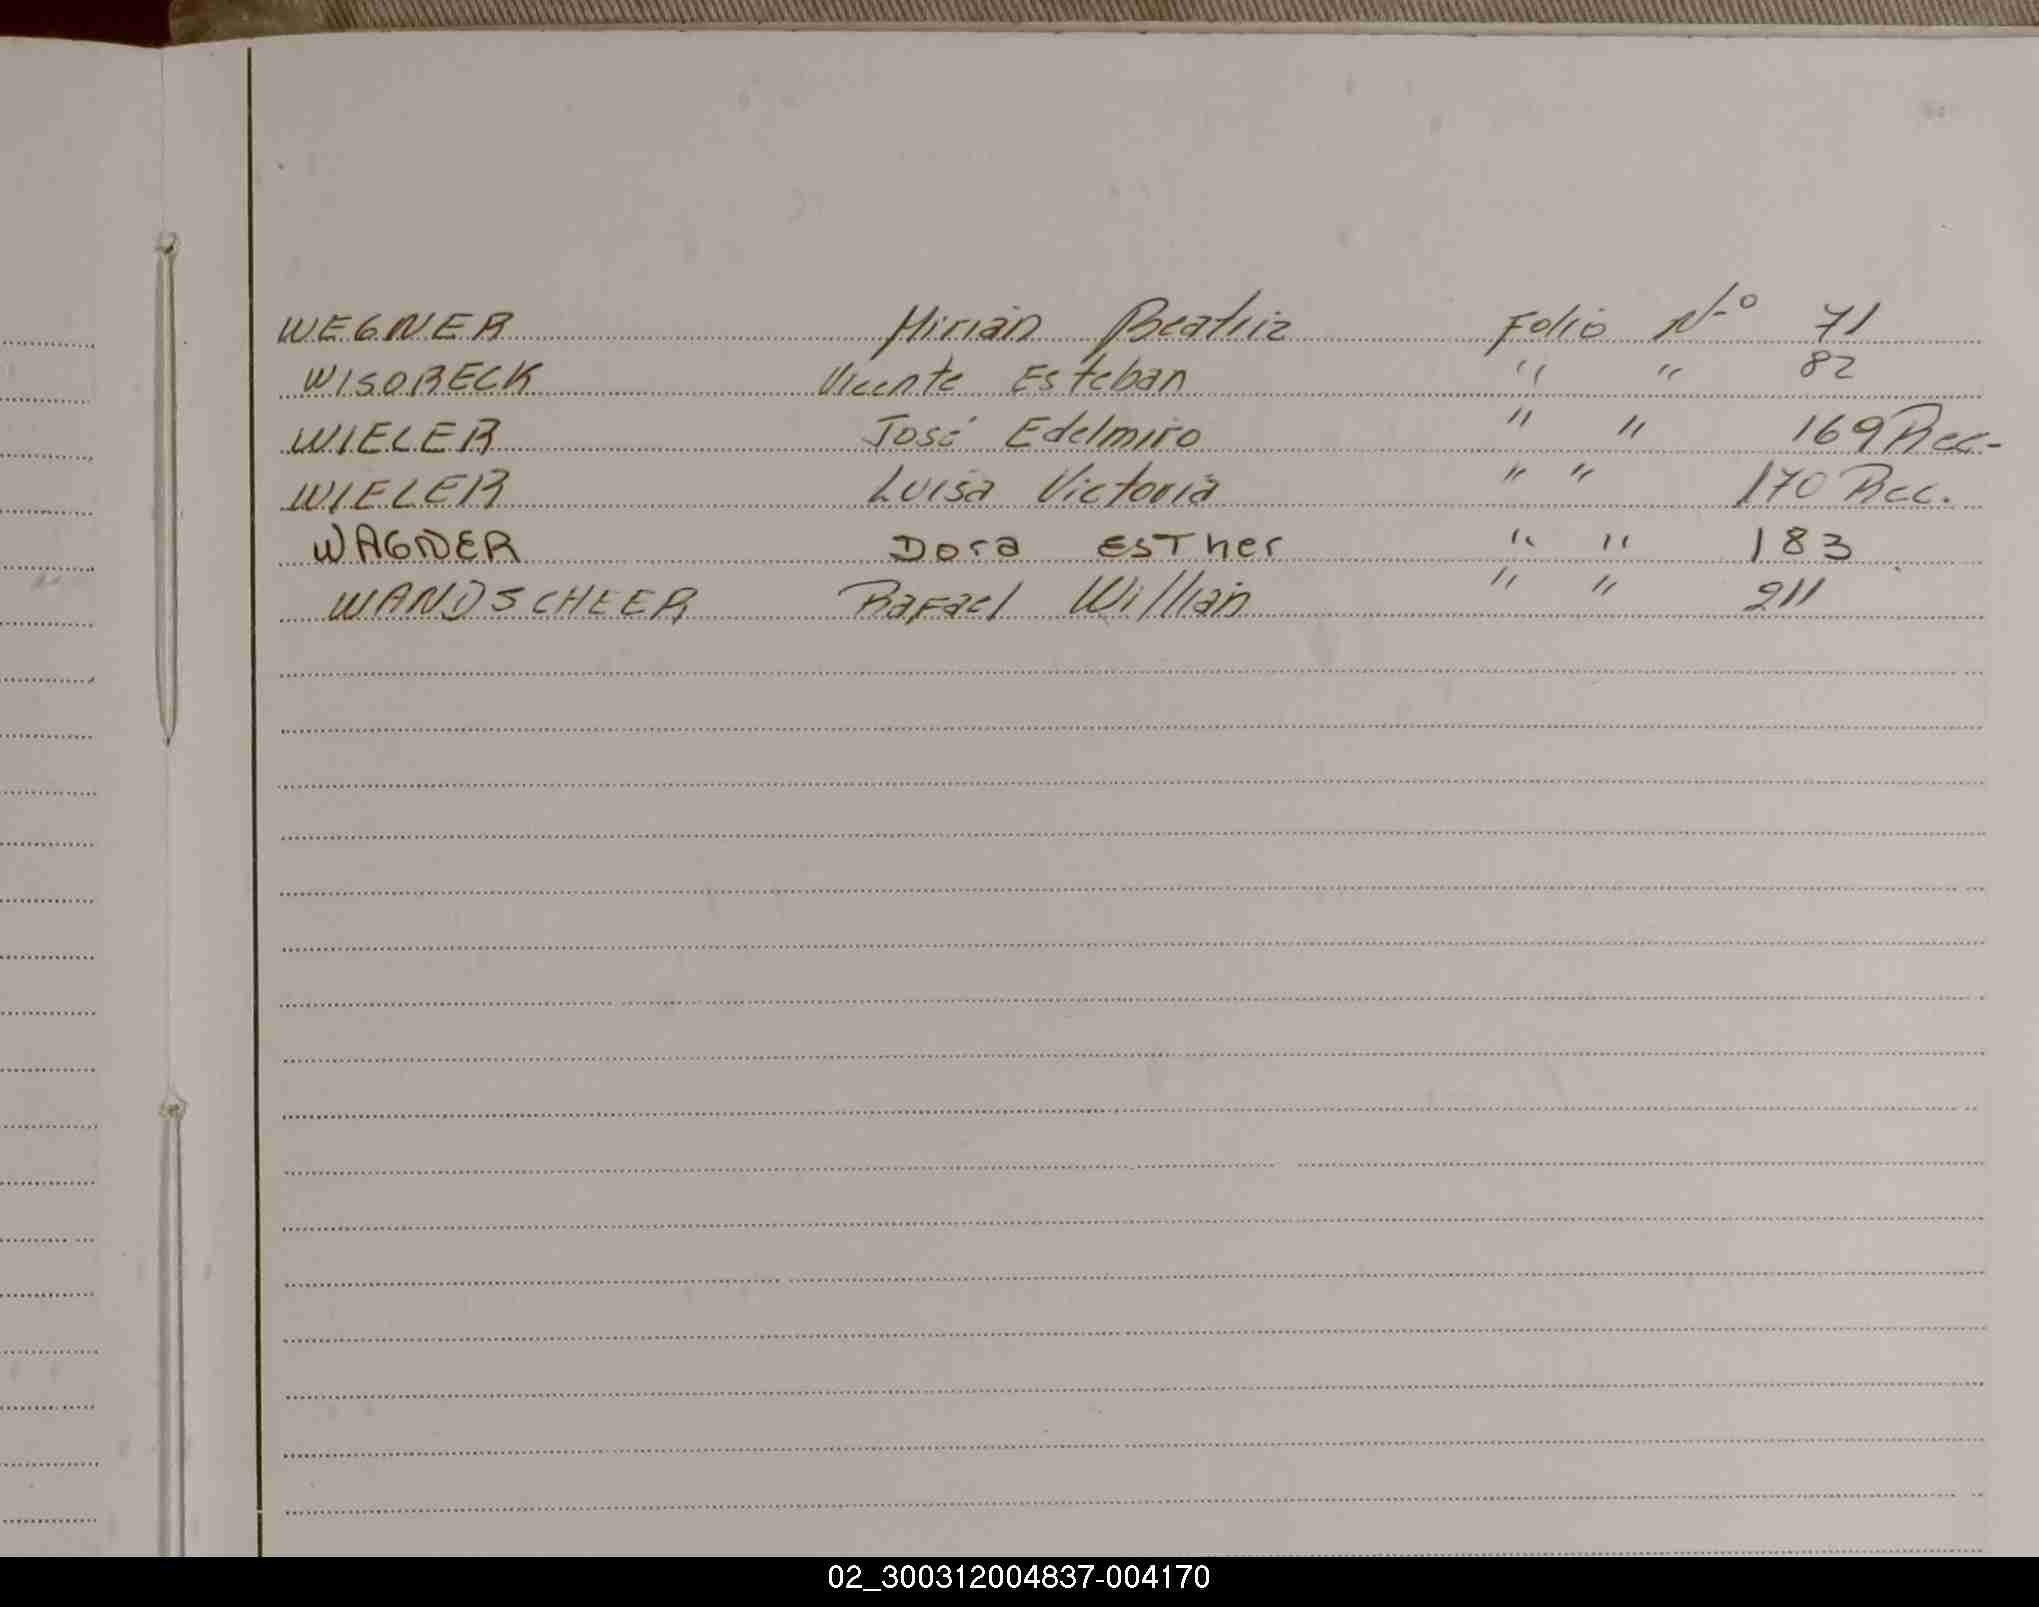 WEGNER Mirian Beatriz Folio N-o 71
WISOBECK Vicente Esteban " " 82
WIELER José Edelmiro " " 169 Rec-
WIELER Luisa Victoria " " 170 Rec.
WAGNER Dora EsTher " " 183
WANDSCHEER Rafael Willian " " 211
02_300312004837-004170